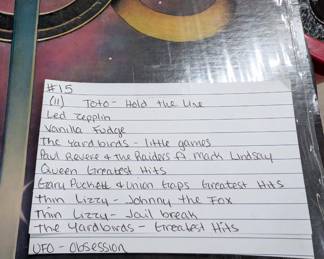 #15
(11) Toto - Hold the Line
Led Zepplin
Vanilla Fudge
The Yardbirds - little games
Paul Revere & The Raiders ft Mark Lindsay
Queen Greatest Hits
Gary Puckett & Union Gaps Greatest Hits
Thin Lizzy - Johnny the Fox
Thin Lizzy - Jail break
The Yardbirds - Greatest Hits
UFO - Obsession